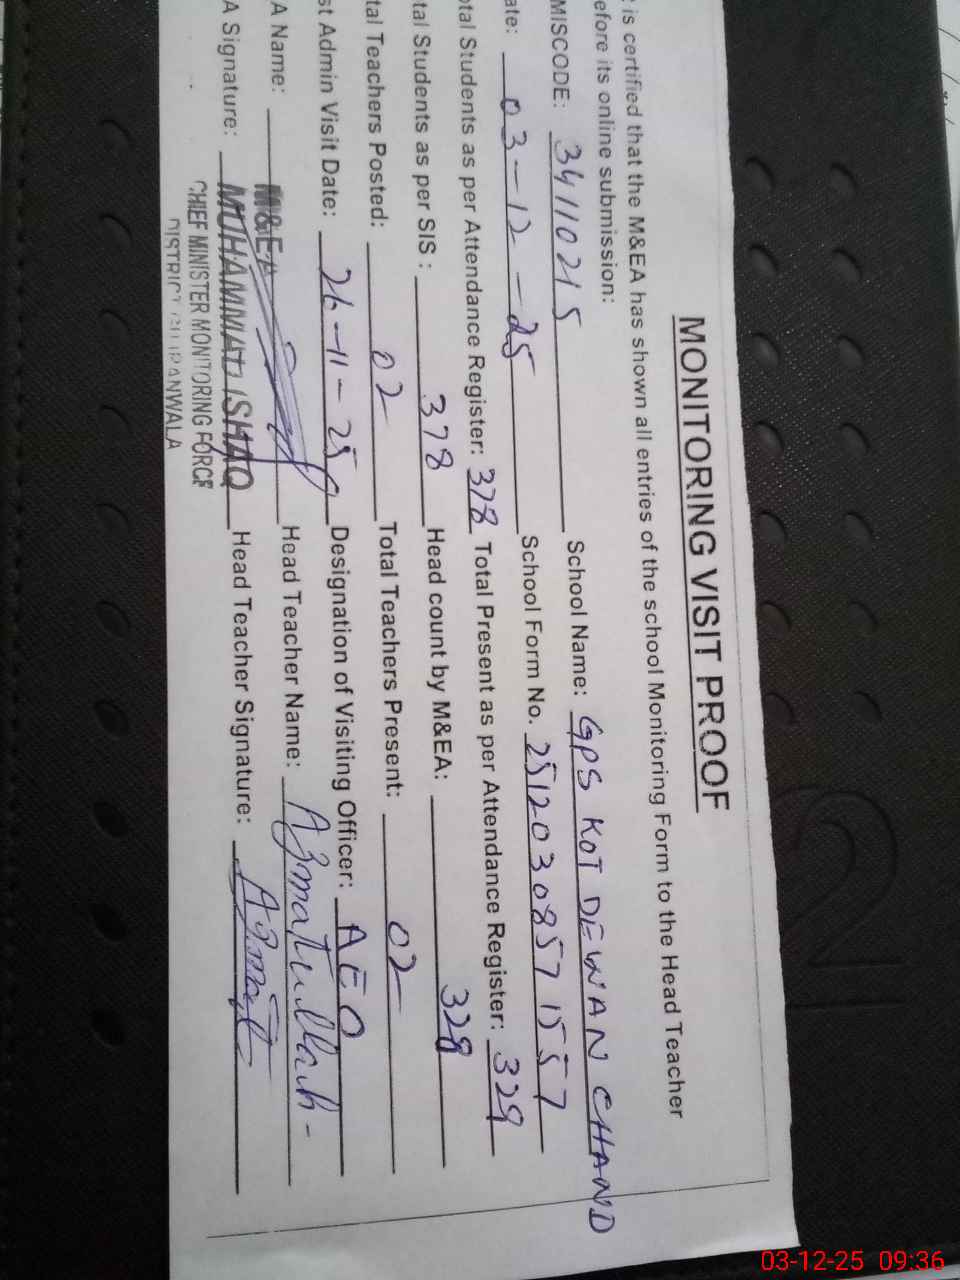 MONITORING VISIT PROOF
is certified that the M&EA has shown all entries of the school Monitoring Form to the Head Teacher
efore its online submission:
MISCODE: 34110215 School Name: GPS KOT DEWAN CHAND
ate: 03-12-25 School Form No. 2512030857 1557
otal Students as per Attendance Register: 378 Total Present as per Attendance Register: 329
tal Students as per SIS : 378 Head count by M&EA: 328
tal Teachers Posted: 02 Total Teachers Present: 02
st Admin Visit Date: 26-11-25 Designation of Visiting Officer: AEO
A Name: M&EA Head Teacher Name: Azmatullah
A Signature: MUHAMMAD ISHAQ Head Teacher Signature: Azmat
CHIEF MINISTER MONITORING FORCE
DISTRICT GUJRANWALA
03-12-25 09:36